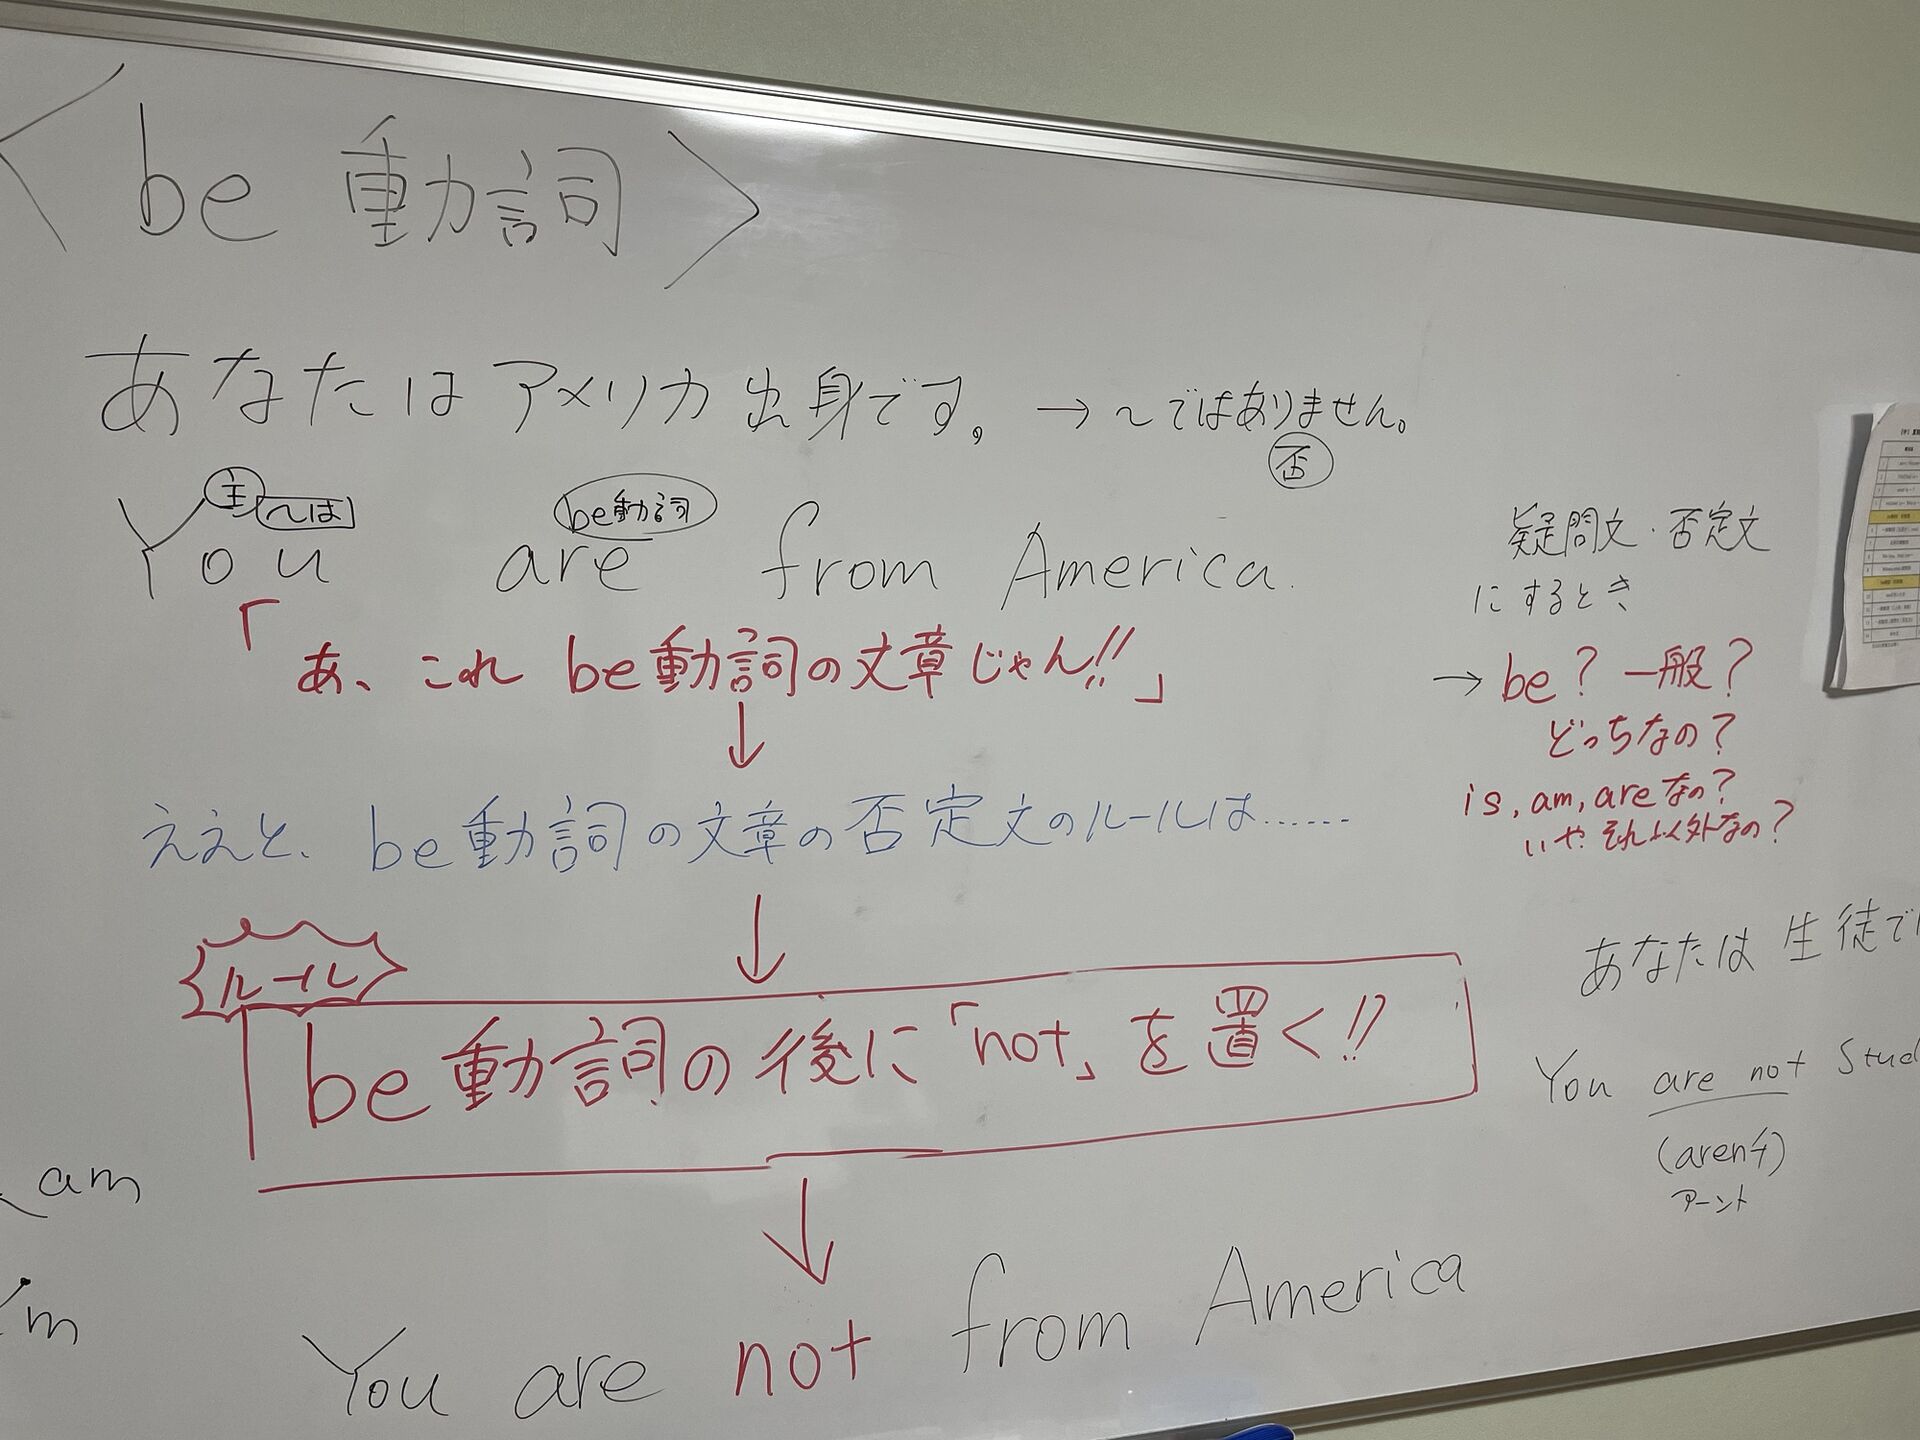 <be動詞>
あなたはアメリカ出身です。 → 〜ではありません。
否
主 〜は be動詞
You are from America.
「あ、これ be動詞の文章じゃん!!」
↓
ええと、be動詞の文章の否定文のルールは……
↓
ルール
be動詞の後に「not」を置く!!
↓
You are not from America
疑問文・否定文
にするとき
→ be? 一般?
どっちなの?
is, am, areなの?
いや それ以外なの?
あなたは 生徒で
You are not Stud
(aren't)
アーント
am
'm